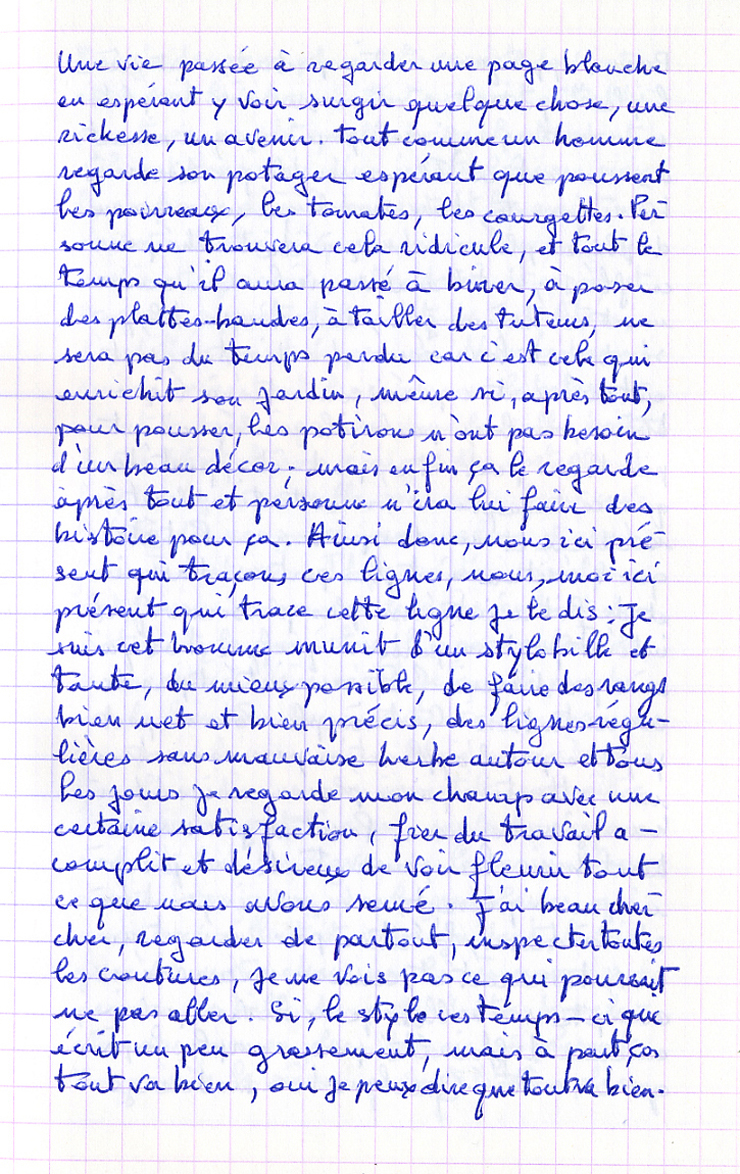 Une vie passée à regarder une page blanche
en espérant y voir surgir quelque chose, une
richesse, un avenir. tout comme un homme
regarde son potager espérant que poussent
les poirreaux, les tomates, les courgettes. Per
sonne ne trouvera cela ridicule, et tout le
temps qu'il aura passé à biner, à poser
des plattes-bandes, à tailler des tuteurs, ne
sera pas du temps perdu car c'est cela qui
enrichit son jardin, même si, après tout,
pour pousser, les potirons n'ont pas besoin
d'un beau décor ; mais enfin ça le regarde
après tout et personne n'ira lui faire des
histoire pour ça. Ainsi donc, nous ici pré
sent qui traçons ces lignes, nous, moi ici
présent qui trace cette ligne je le dis : Je
suis cet homme munit d'un stylo bille et
tente, du mieux possible, de faire des rangs
bien net et bien précis, des lignes régu-
lières sans mauvaise herbe autour et tous
les jours je regarde mon champ avec une
certaine satisfaction, fier du travail a-
complit et désireux de voir fleurir tout
ce que nous avons semé. J'ai beau cher
cher, regarder de partout, inspecter toutes
les coutures, je ne vois pas ce qui pourrait
ne pas aller. Si, le stylo ces temps-ci que
écrit un peu grassement, mais à part ça
tout va bien, oui je peux dire que tout va bien.